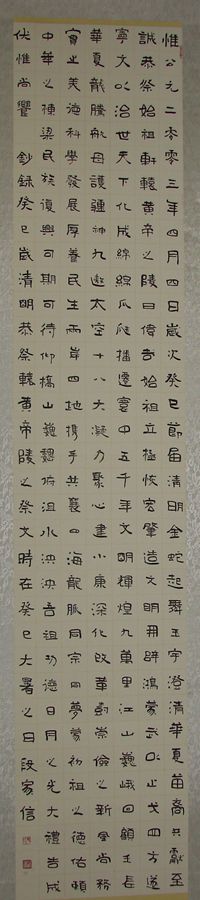 惟公元二零零三年四月四日歲次癸巳節屆清明金蛇起舞玉宇澄清華夏苗裔共獻至
誠恭祭始祖軒轅黃帝之陵曰偉哉始祖立極恢宏肇造文明開辟鴻蒙武以止戈四方遂
寧文以治世天下化成綿綿瓜瓞播遷寰中五千年文明輝煌九萬里江山巍峨回顧壬辰
華夏龍騰航母護疆神九遨太空十八大凝力聚心建小康深化改革崇儉之新風尚務
實之美德科學發展厚養民生兩岸四地攜手共襄四海龍脈同宗同夢夢初祖之德佑
中華之棟梁民族復興可期可待仰橋山巍巍俯沮水泱泱吾祖功德日月之光大禮告成
伏惟尚饗 鈔錄癸巳歲清明恭祭轅黃帝陵之祭文時在癸巳大暑之日段家信